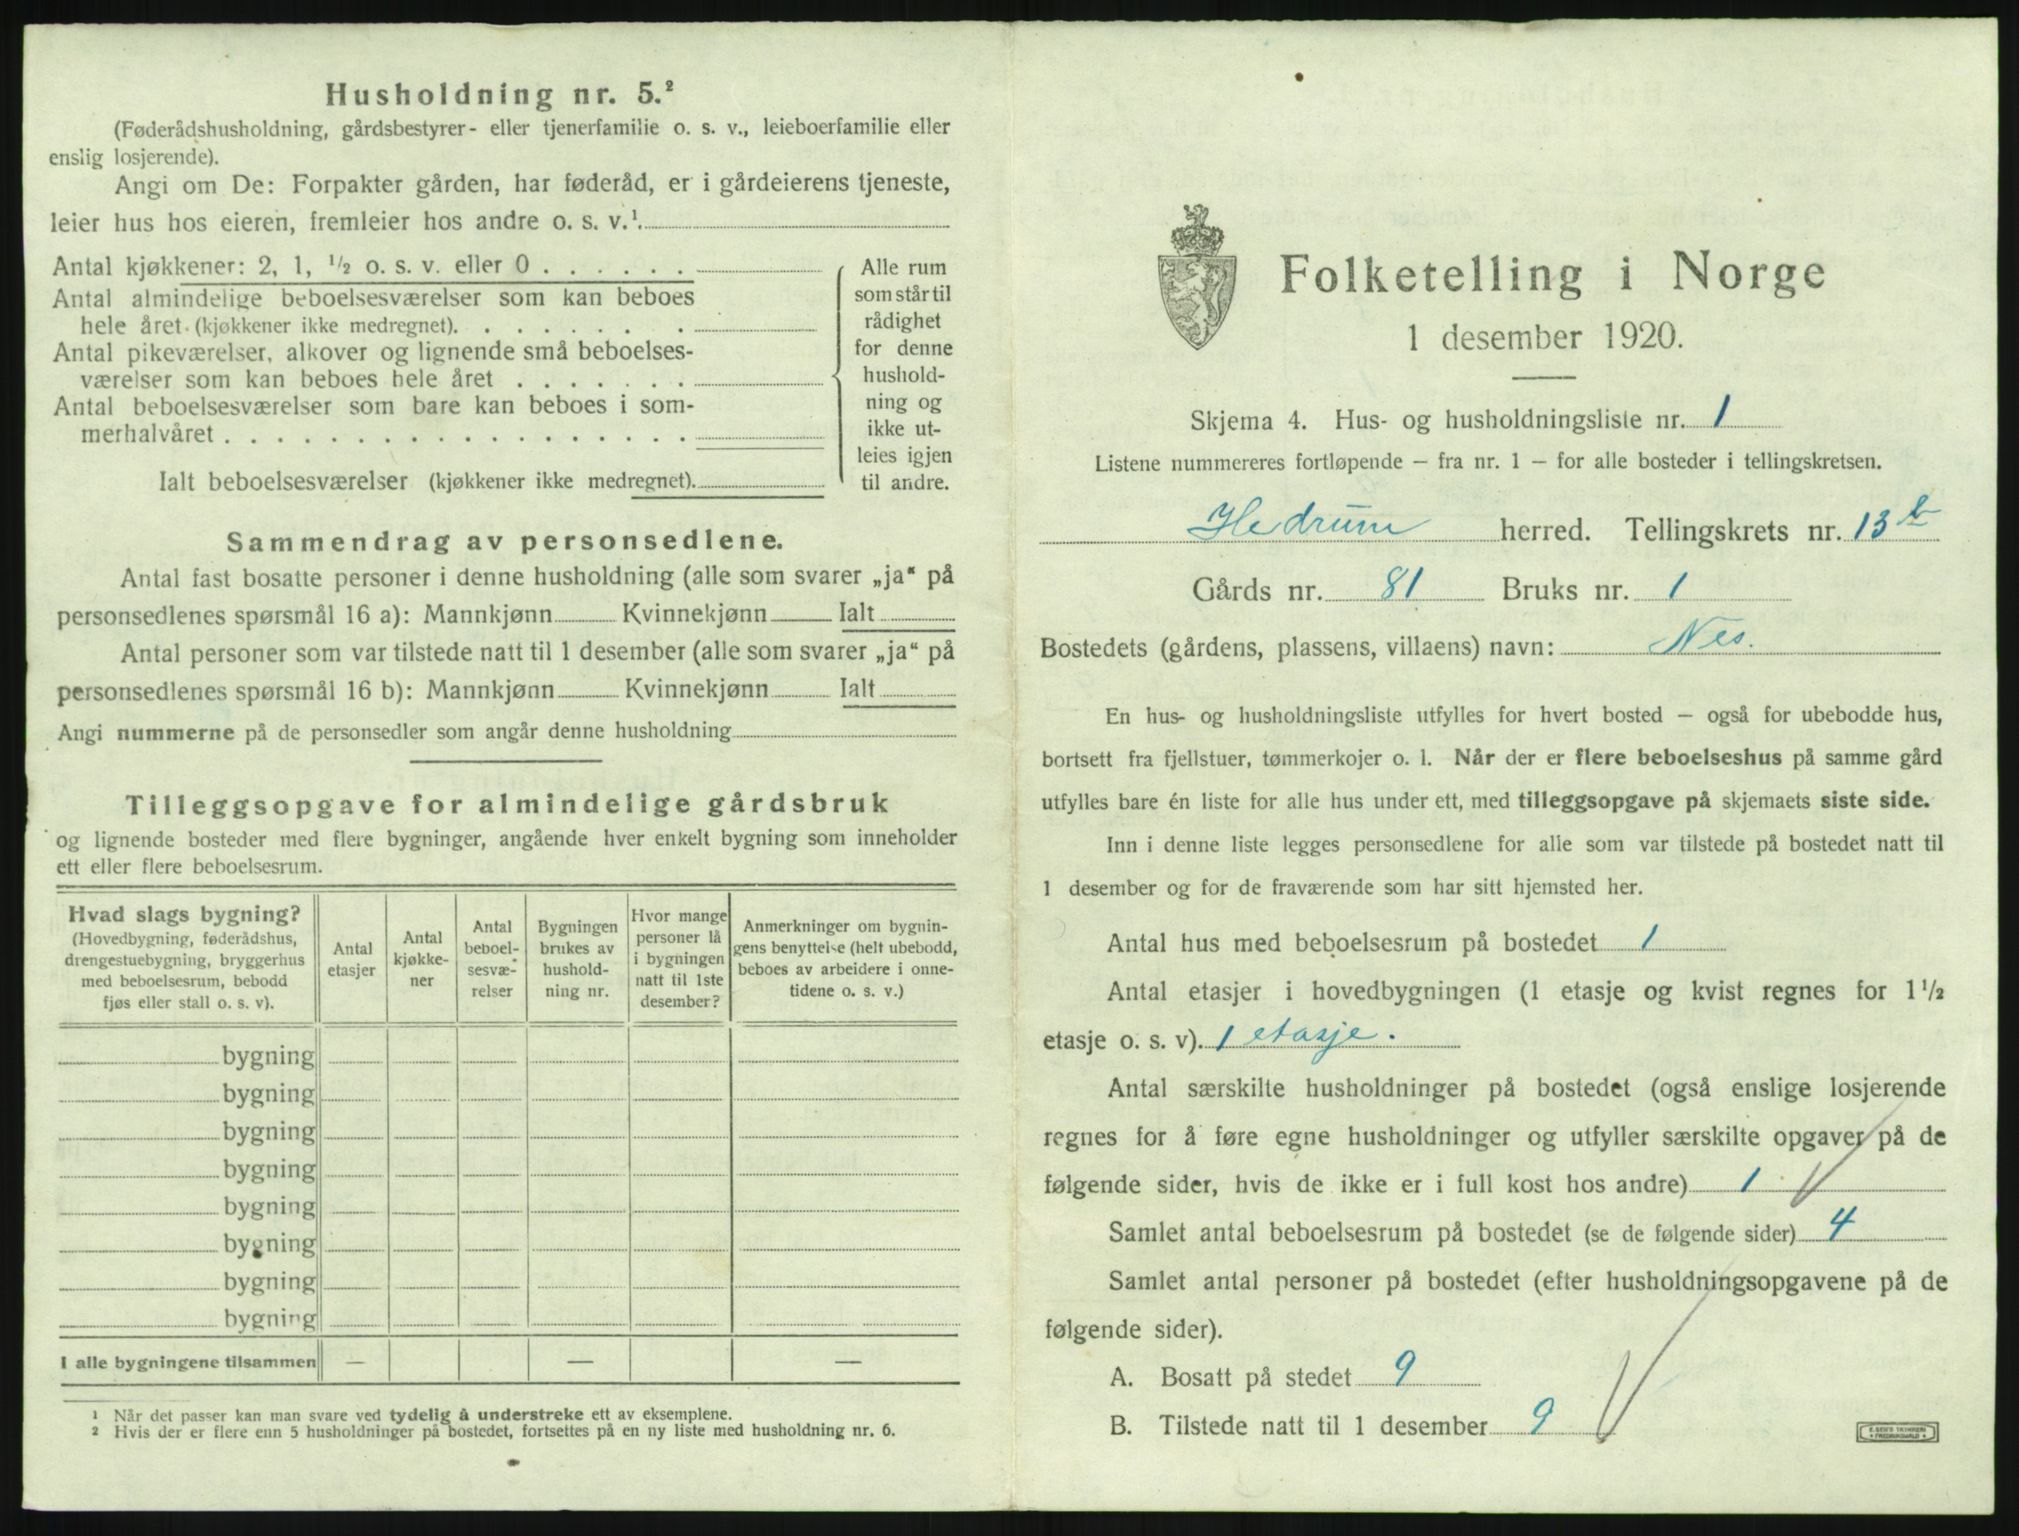 Husholdning nr. 5.²
(Føderådshusholdning, gårdsbestyrer- eller tjenerfamilie o. s. v., leieboerfamilie eller
enslig losjerende).
Angi om De: Forpakter gården, har føderåd, er i gårdeierens tjeneste,
leier hus hos eieren, fremleier hos andre o. s. v.¹.
Antal kjøkkener: 2, 1, ½ o. s. v. eller 0 . . . . . .
Antal almindelige beboelsesværelser som kan beboes
hele året (kjøkkener ikke medregnet). . . . . . . . .
Antal pikeværelser, alkover og lignende små beboelses-
værelser som kan beboes hele året . . . . . . .
Antal beboelsesværelser som bare kan beboes i som-
merhalvåret . . . . . . . . . . . . . . . . . .
Ialt beboelsesværelser (kjøkkener ikke medregnet).
Alle rum
som står til
rådighet
for denne
hushold-
ning og
ikke ut-
leies igjen
til andre.
Sammendrag av personsedlene.
Antal fast bosatte personer i denne husholdning (alle som svarer „ja“ på
personsedlenes spørsmål 16 a): Mannkjønn Kvinnekjønn Ialt
Antal personer som var tilstede natt til 1 desember (alle som svarer „ja“ på
personsedlenes spørsmål 16 b): Mannkjønn Kvinnekjønn Ialt
Angi nummerne på de personsedler som angår denne husholdning
Tilleggsopgave for almindelige gårdsbruk
og lignende bosteder med flere bygninger, angående hver enkelt bygning som inneholder
ett eller flere beboelsesrum.
Hvad slags bygning?
(Hovedbygning, føderådshus,
drengestuebygning, bryggerhus
med beboelsesrum, bebodd
fjøs eller stall o. s. v).
Antal
etasjer
Antal
kjøkke-
ner
Antal
beboel-
sesvæ-
relser
Bygningen
brukes av
hushold-
ning nr.
Hvor mange
personer lå
i bygningen
natt til 1ste
desember?
Anmerkninger om bygnin-
gens benyttelse (helt ubebodd,
beboes av arbeidere i onne-
tidene o. s. v.)
bygning
bygning
bygning
bygning
bygning
bygning
bygning
bygning
I alle bygningene tilsammen — — —
¹ Når det passer kan man svare ved tydelig å understreke ett av eksemplene.
² Hvis der er flere enn 5 husholdninger på bostedet, fortsettes på en ny liste med husholdning nr. 6.
Folketelling i Norge
1 desember 1920.
Skjema 4. Hus- og husholdningsliste nr. 1
Listene nummereres fortløpende – fra nr. 1 – for alle bosteder i tellingskretsen.
Hedrum herred. Tellingskrets nr. 13 b
Gårds nr. 81 Bruks nr. 1
Bostedets (gårdens, plassens, villaens) navn: Nes.
En hus- og husholdningsliste utfylles for hvert bosted – også for ubebodde hus,
bortsett fra fjellstuer, tømmerkojer o. l. Når der er flere beboelseshus på samme gård
utfylles bare én liste for alle hus under ett, med tilleggsopgave på skjemaets siste side.
Inn i denne liste legges personsedlene for alle som var tilstede på bostedet natt til
1 desember og for de fraværende som har sitt hjemsted her.
Antal hus med beboelsesrum på bostedet 1
Antal etasjer i hovedbygningen (1 etasje og kvist regnes for 1½
etasje o. s. v). 1 etasje.
Antal særskilte husholdninger på bostedet (også enslige losjerende
regnes for å føre egne husholdninger og utfyller særskilte opgaver på de
følgende sider, hvis de ikke er i full kost hos andre) 1
Samlet antal beboelsesrum på bostedet (se de følgende sider) 4
Samlet antal personer på bostedet (efter husholdningsopgavene på de
følgende sider).
A. Bosatt på stedet 9
B. Tilstede natt til 1 desember 9